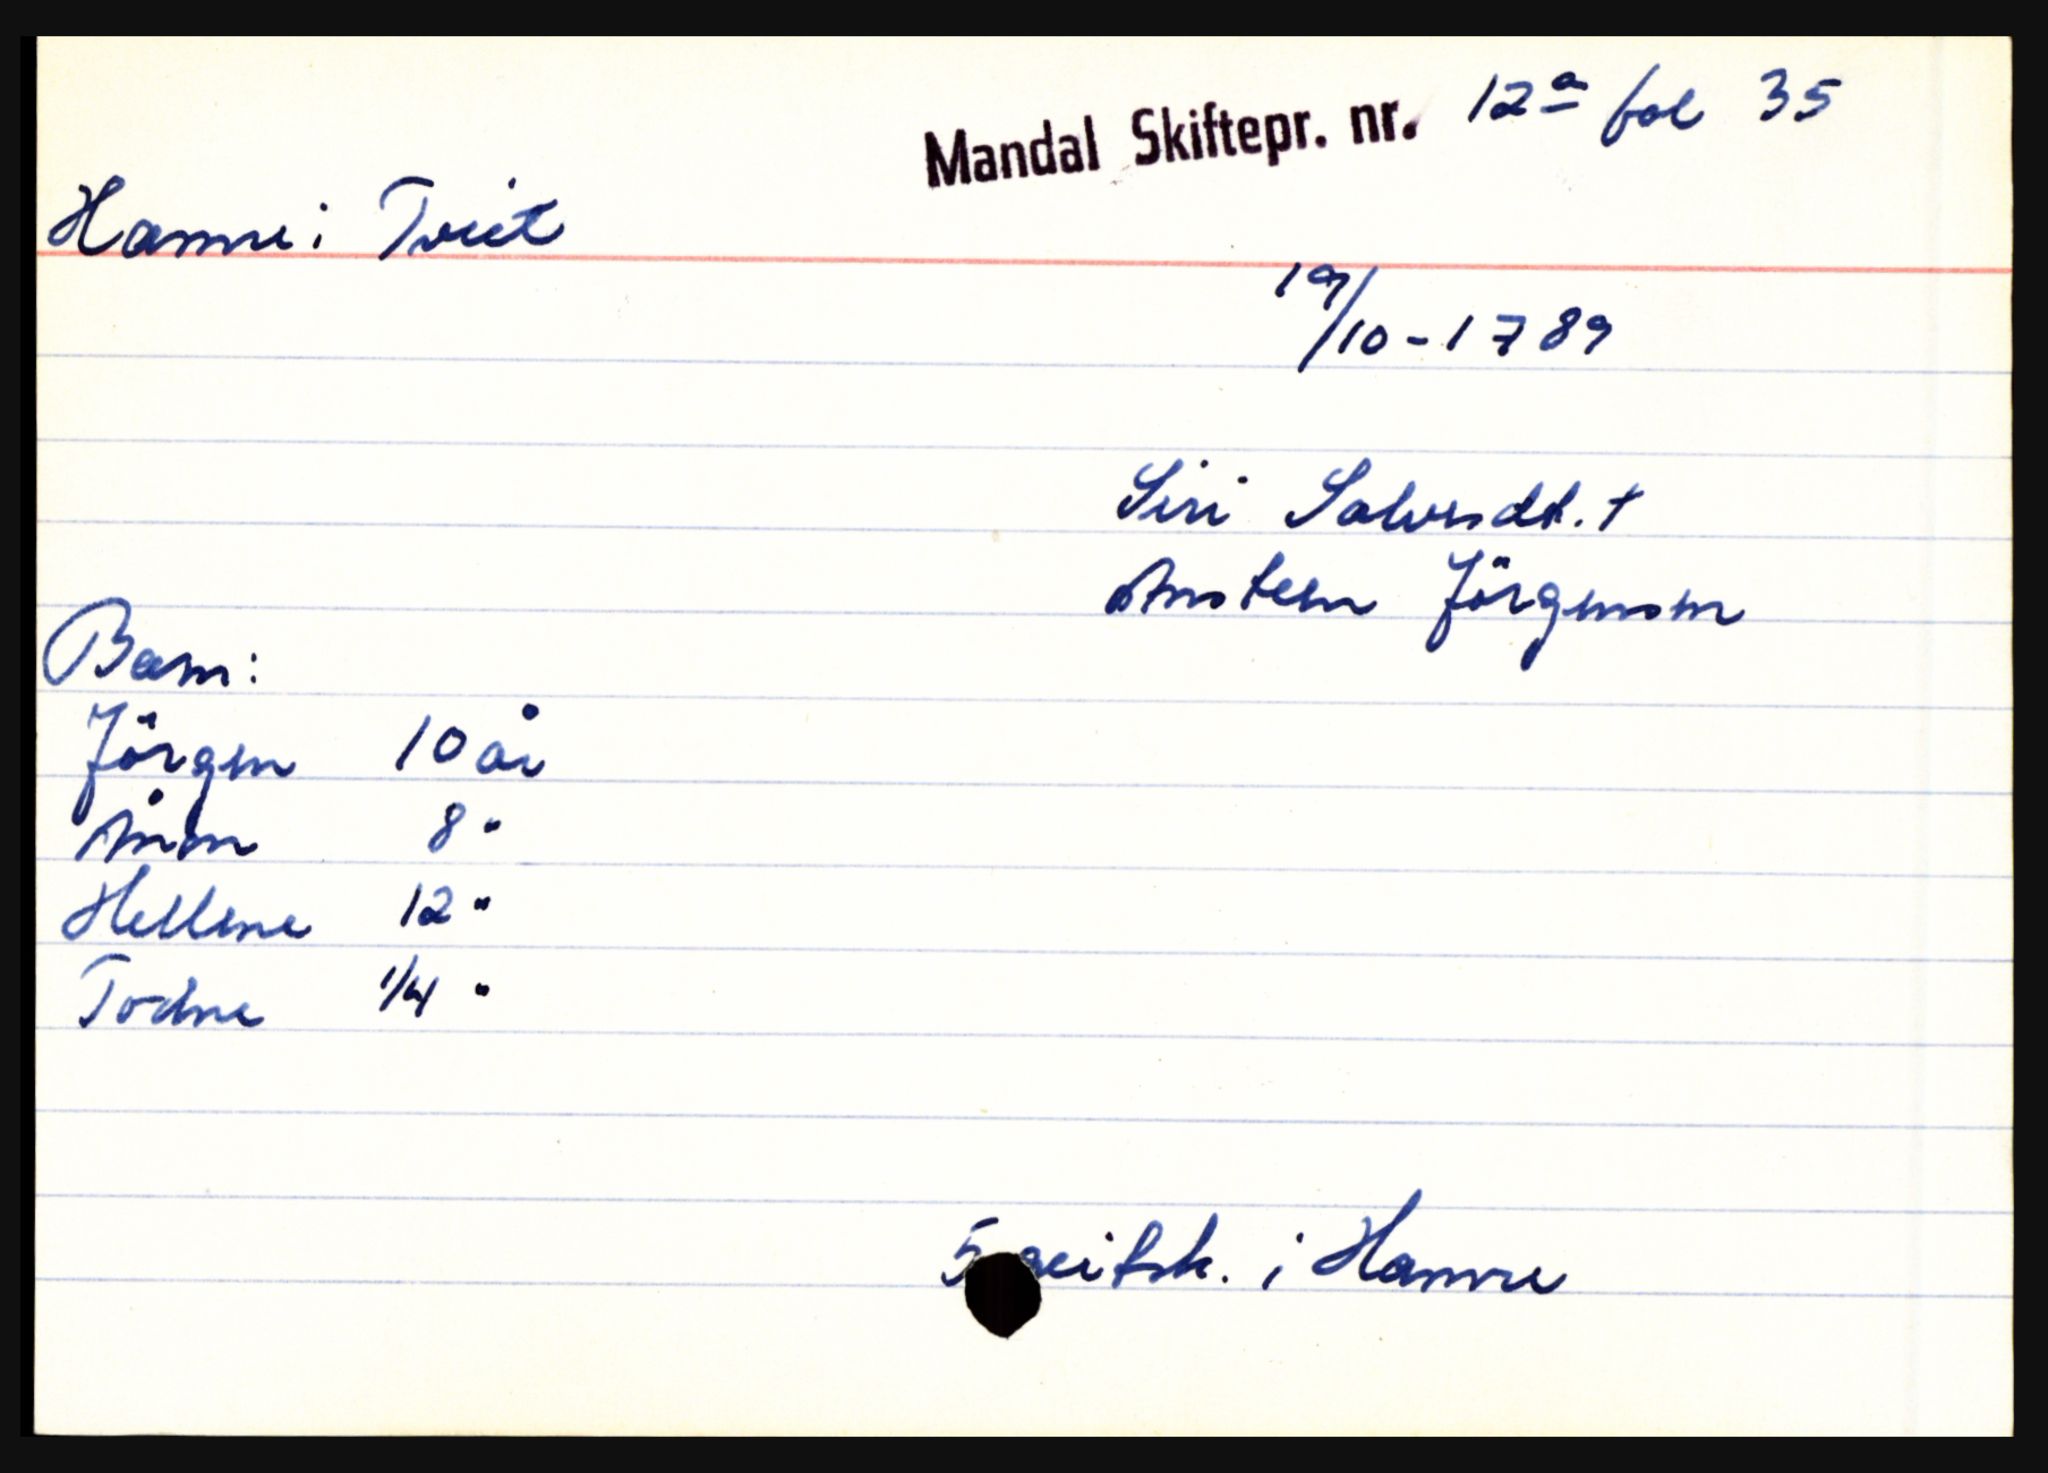 Mandal Skiftepr. nr. 12a fol 35
Hamre i Tveit
19/10-1789
Siri Salvesdt. +
Anstein Jörgensen
Barn:
Jörgen 10 år
8 "
Hellene 12 "
Todne 1/4 "
5 geitsk. i Hamre